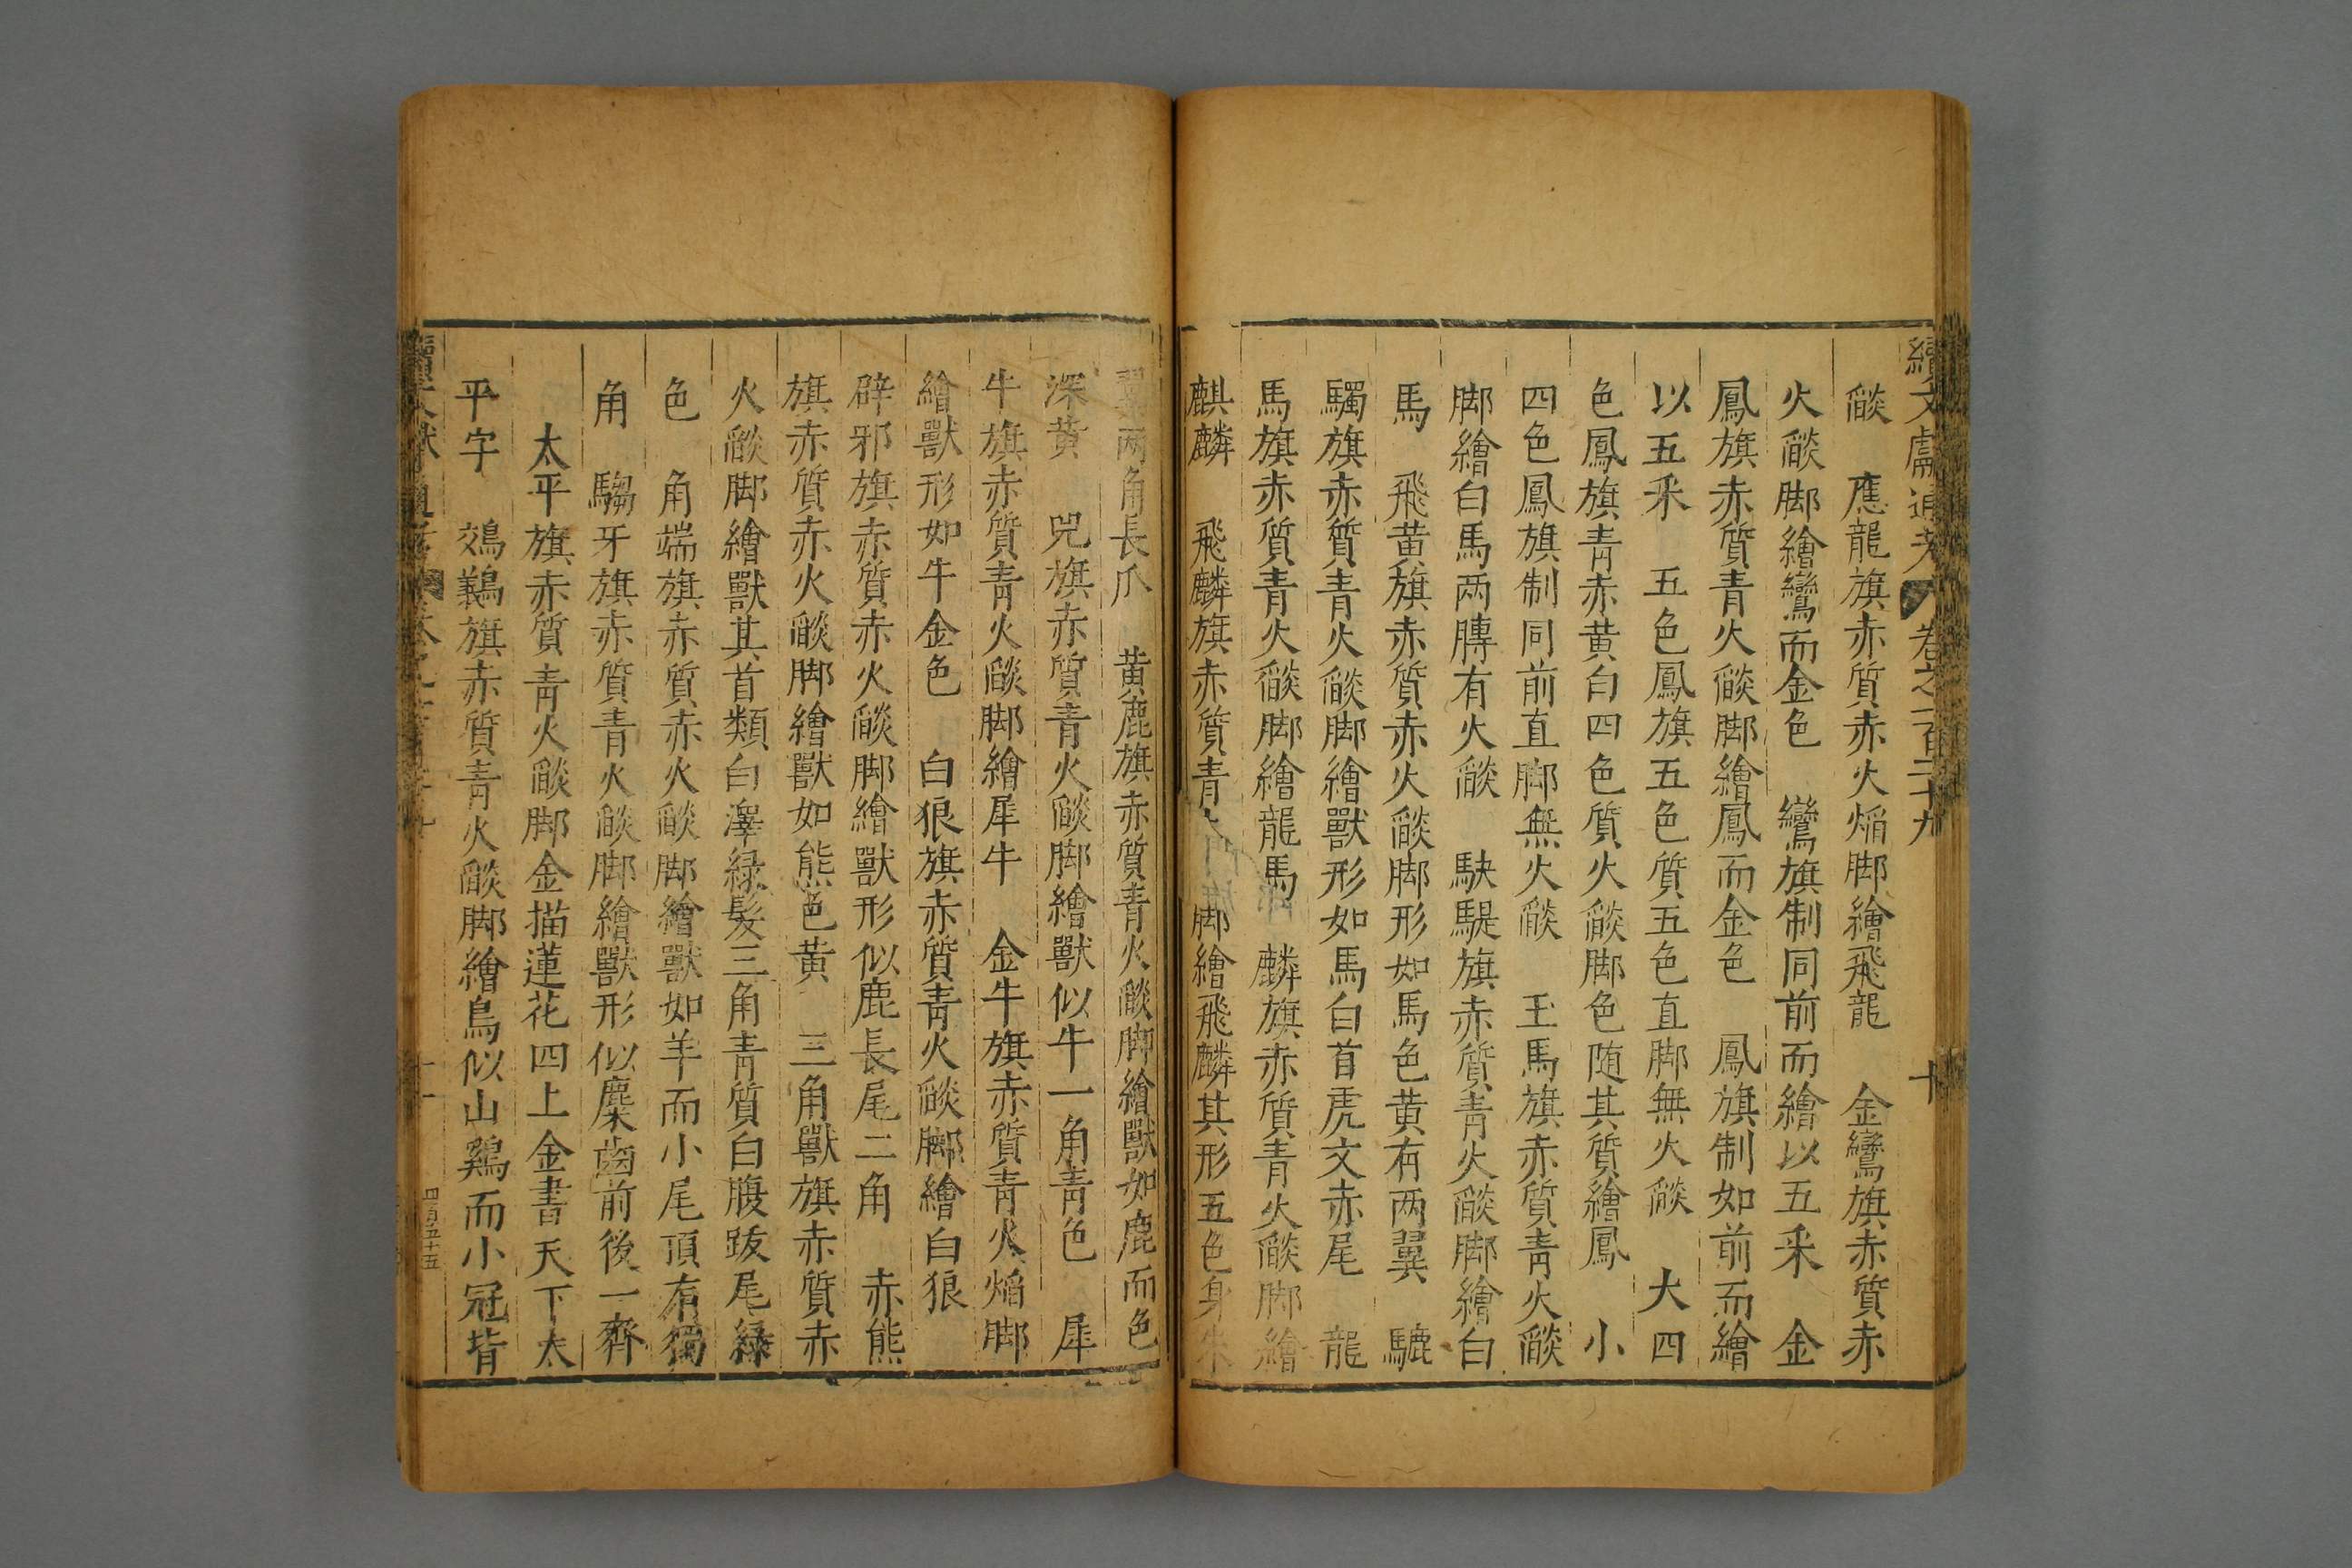 續文獻通考 卷之一百二十九 十
燄　應龍旗赤質赤火焰脚繪飛龍　金鸞旗赤質赤
火燄脚繪鸞而金色　鸞旗制同前而繪以五采　金
鳳旗赤質青火燄脚繪鳳而金色　鳳旗制如前而繪
以五采　五色鳳旗五色質五色直脚無火燄　大四
色鳳旗青赤黄白四色質火燄脚色随其質繪鳳　小
四色鳳旗制同前直脚無火燄　玉馬旗赤質青火燄
脚繪白馬两膊有火燄　駃騠旗赤質青火燄脚繪白
馬　飛黄旗赤質赤火燄脚形如馬色黄有两翼　騼
騳旗赤質青火燄脚繪獸形如馬白首虎文赤尾　龍
馬旗赤質青火燄脚繪龍馬　麟旗赤質青火燄脚繪
麒麟　飛麟旗赤質青脚繪飛麟其形五色身朱
翼两角長爪　黄鹿旗赤質青火燄脚繪獸如鹿而色
深黄　兕旗赤質青火燄脚繪獸似牛一角青色　犀
牛旗赤質青火燄脚繪犀牛　金牛旗赤質青火焰脚
繪獸形如牛金色　白狼旗赤質青火燄脚繪白狼
辟邪旗赤質赤火燄脚繪獸形似鹿長尾二角　赤熊
旗赤質赤火燄脚繪獸如熊色黄　三角獸旗赤質赤
火燄脚繪獸其首類白澤緑髪三角青質白腹跋尾緑
色　角端旗赤質赤火燄脚繪獸如羊而小尾頂有獨
角　騶牙旗赤質青火燄脚繪獸形似麋齒前後一齊
太平旗赤質青火燄脚金描蓮花四上金書天下太
平字　鵕鸃旗赤質青火燄脚繪鳥似山鷄而小冠背
十一
四百五十五